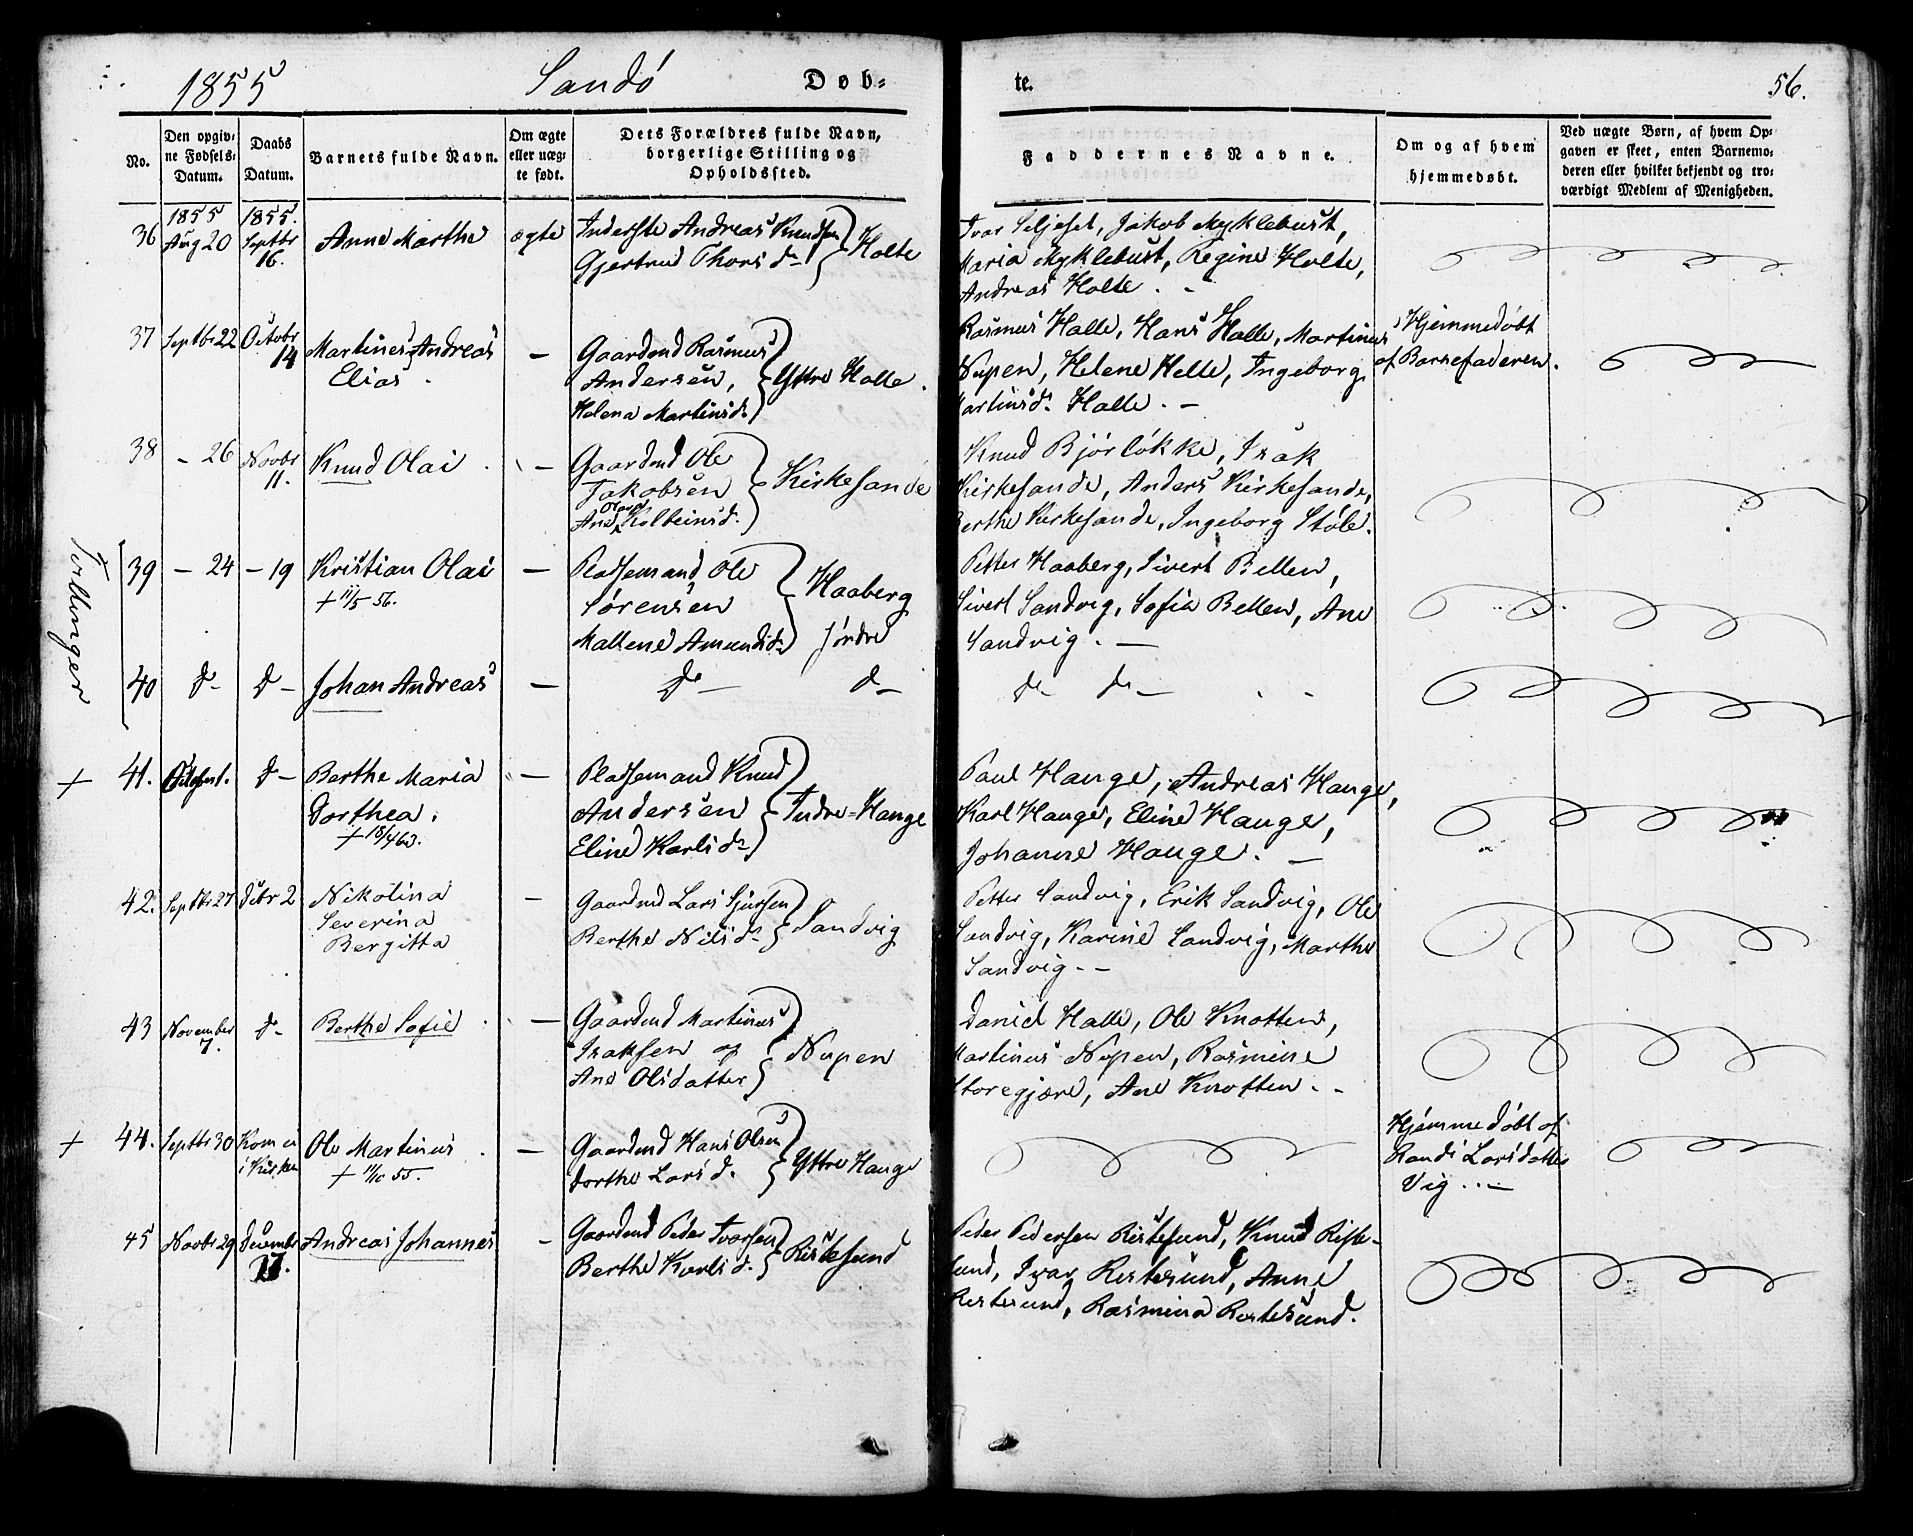 1855 Sandø Døb=
te. 56.
No.
Den opgiv=
ne Fødsels=
Datum.
Daabs
Datum.
Barnets fulde Navn.
Om ægte
eller uæg=
te født.
Dets Forældres fulde Navn,
borgerlige Stilling og
Opholdssted.
Faddernes Navne.
Om og af hvem
hjemmedøbt.
Ved uægte Børn, af hvem Op=
gaven er skeet, enten Barnemo=
deren eller hvilket bekjendt og tro=
værdigt Medlem af Menigheden.
36
1855
Aug 20
1855.
Septbr
16.
Anne Marthe
ægte
Inderste Andreas Knudsen
Gjertrud Thors d.
Holte
Ivar Seljeset, Jakob Myklebust,
Maria Myklebust, Regine Holte,
Andreas Holte. -
37
Septbr 22
Octobr
14
Martines Andreas
Elias.
—
Gaardmd Rasmus
Andersen,
Helena Martinsd.
Yttre Halle.
Rasmus Halle, Hans Halle, Martinus
Nupen, Helene Helle, Ingeborg
Martinsd. Halle. -
Hjemmedøbt
af Barnefaderen.
38
- 26
Novbr
11.
Knud Olai
—
Gaardmd Ole
Jakobsen
Olava
Ane Kolbeinsd.
Kirkesande
Knud Bjørløkke, Isak
Kirkesande, Anders Kirkesande,
Berthe Kirkesande, Ingeborg Støle.
Tvillinger
39
- 24
- 19
Kristian Olai
+ 11/5 56.
—
Pladsemand Ole
Sørensen
Mallene Amundsd.
Haaberg
søndre
Petter Haaberg, Sivert Bellen,
Sivert Sandvig, Sofia Bellen, Ane
Sandvig. —
40
d-
d-
Johan Andreas
—
do —
d-
do do —
+
41.
d-
Berthe Maria
Dorthea.
+ 18/4 63.
—
Pladsemand Knud
Andersen
Eline Karlsd.
Indre-Hauge
Paul Hauge, Andreas Hauge,
Karl Hauge, Eline Hauge,
Johanne Hauge. —
42.
Septbr 27
Debr 2
Nikolina
Severina
Bergitta
-
Gaardmd Lars Sjursen
Berthe Nilsd.
Sandvig
Petter Sandvig, Erik Sandvig, Ole
Sandvig, Karine Sandvig, Marthe
Sandvig. -
43
November
7.
d-
Berthe Sofie
—
Gaardmd Martinus
Isaksen og
Ane Olsdatter
Nupen
Daniel Halle, Ole Knotten,
Martinus Nupen, Rasmine
Storegjære, Ane Knotten. -
+
44.
Septbr 30
Kom ei
i Kirken
Ole Martinus
+ 11/10 55.
—
Gaardmd Hans Olsen
Dorthe Larsd.
Yttre Hauge
Hjemmedøbt af
Randi Larsdatter
Vig. -
45
Novbr 29
Decembr
Andreas Johannes
-
Gaardmd Peder Ivarsen
Berthe Karlsd.
Ristesund
Peder Pedersen Ristesund, Knud Riste-
sund, Ivar Ristesund, Anne
Ristesund, Rasmina Ristesund.